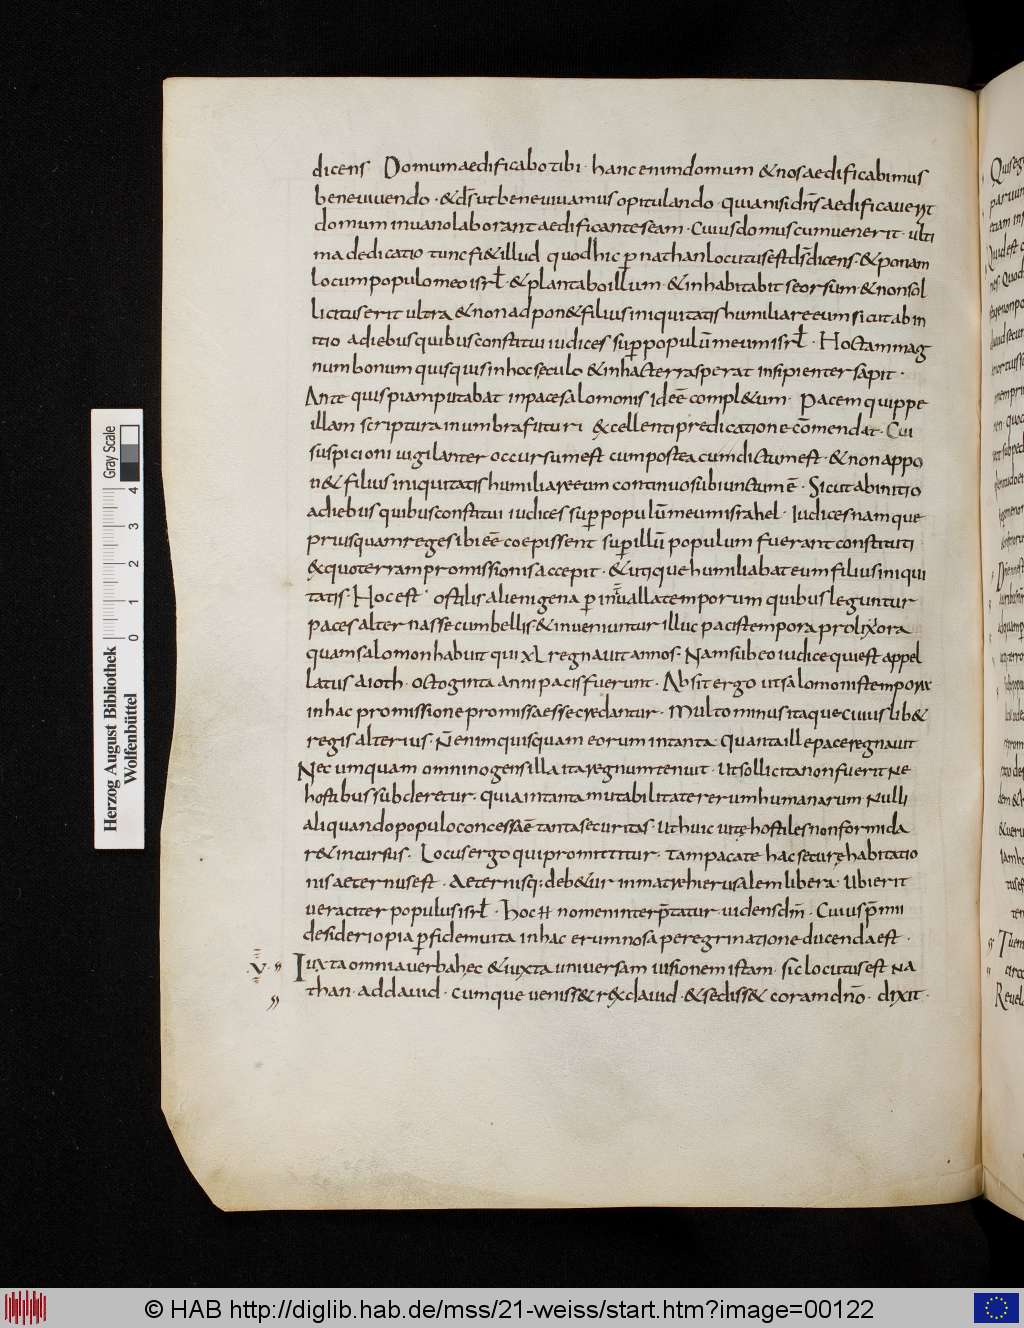 dicens Domum aedificabo tibi · hanc enim domum & nos aedificabimus
bene vivendo · & dſ ut bene vivamus opitulando · quia nisi dn̄s aedificaverit
domum in vano laborant aedificantes eam · Cuius domus cum venerit · ulti
ma dedicatio tunc fi& illud quod hic p̱ nathan locutus est dſ dicens · & ponam
locum populo meo isrł · & plantabo illum · & inhabitabit seorsum · & non sol
licitus erit ultra & non adpon& filius iniquitatis humiliare eum sicut ab in
itio a diebus quibus constitui iudices sup̱ populū meum isrł · Hoc tam mag
num bonum quisquis in hoc seculo & in hac terra sperat insipienter sapit ·
Ante quispiam putabat in pace salomonis id eē compl&um · Pacem quippe
illam scriptura in umbra futuri excellenti predicatione cōmendat · Cui
suspicioni vigilanter occursum est cum postea cum dictum est · & non appo
n& filius iniquitatis humiliare eum continuo subiunctum ē · Sicut ab initio
a diebus quibus constitui iudices sup̱ populū meum israhel · Iudices namque
priusquam reges ibi eē coepissent sup̱ illū populum fuerant constituti
ex quo terram promissionis accepit · & utique humiliabat eum filius iniqui
tatis · Hoc est ostilis alienigena p̱ intervalla temporum quibus leguntur
paces alternasse cum bellis · & inveniuntur illuc pacis tempora prolixiora
quam salomon habuit qui xl regnavit annos · Nam sub eo iudice qui est appel
latus aioth · octoginta anni pacis fuerunt · Absit ergo ut salomonis tempora
in hac promissione promissa esse credantur · Multo minus itaque cuiuslib&
regis alterius · N̄ enim quisquam eorum in tanta quanta ille pace regnavit
Nec umquam omnino gens illa ita regnum tenuit · Ut sollicita non fuerit ne
hostibus subderetur · quia in tanta mutabilitate rerum humanarum nulli
aliquando populo concessa ē tanta securitas · Ut huic vitę hostiles non formida
r& incursus · Locus ergo qui promittitur · tam pacatę hac securę habitatio
nis aeternus est · Aeternisq; deb&ur in matre hierusalem libera · Ubi erit
veraciter populus isrł · Hoc ħ nomen interp̄tatur videns dm̄ · Cuius p̄mii
desiderio pia p̱ fidem vita in hac erumnosa peregrinatione ducenda est ·
· V · Iuxta omnia verba hec & iuxta universam visionem istam · sic locutus est na
than · ad david · Cumque veniss& rex david · & sediss& coram dn̄o · dixit ·
Herzog August Bibliothek
Wolfenbüttel
Gray Scale
0 1 2 3 4
© HAB http://diglib.hab.de/mss/21-weiss/start.htm?image=00122